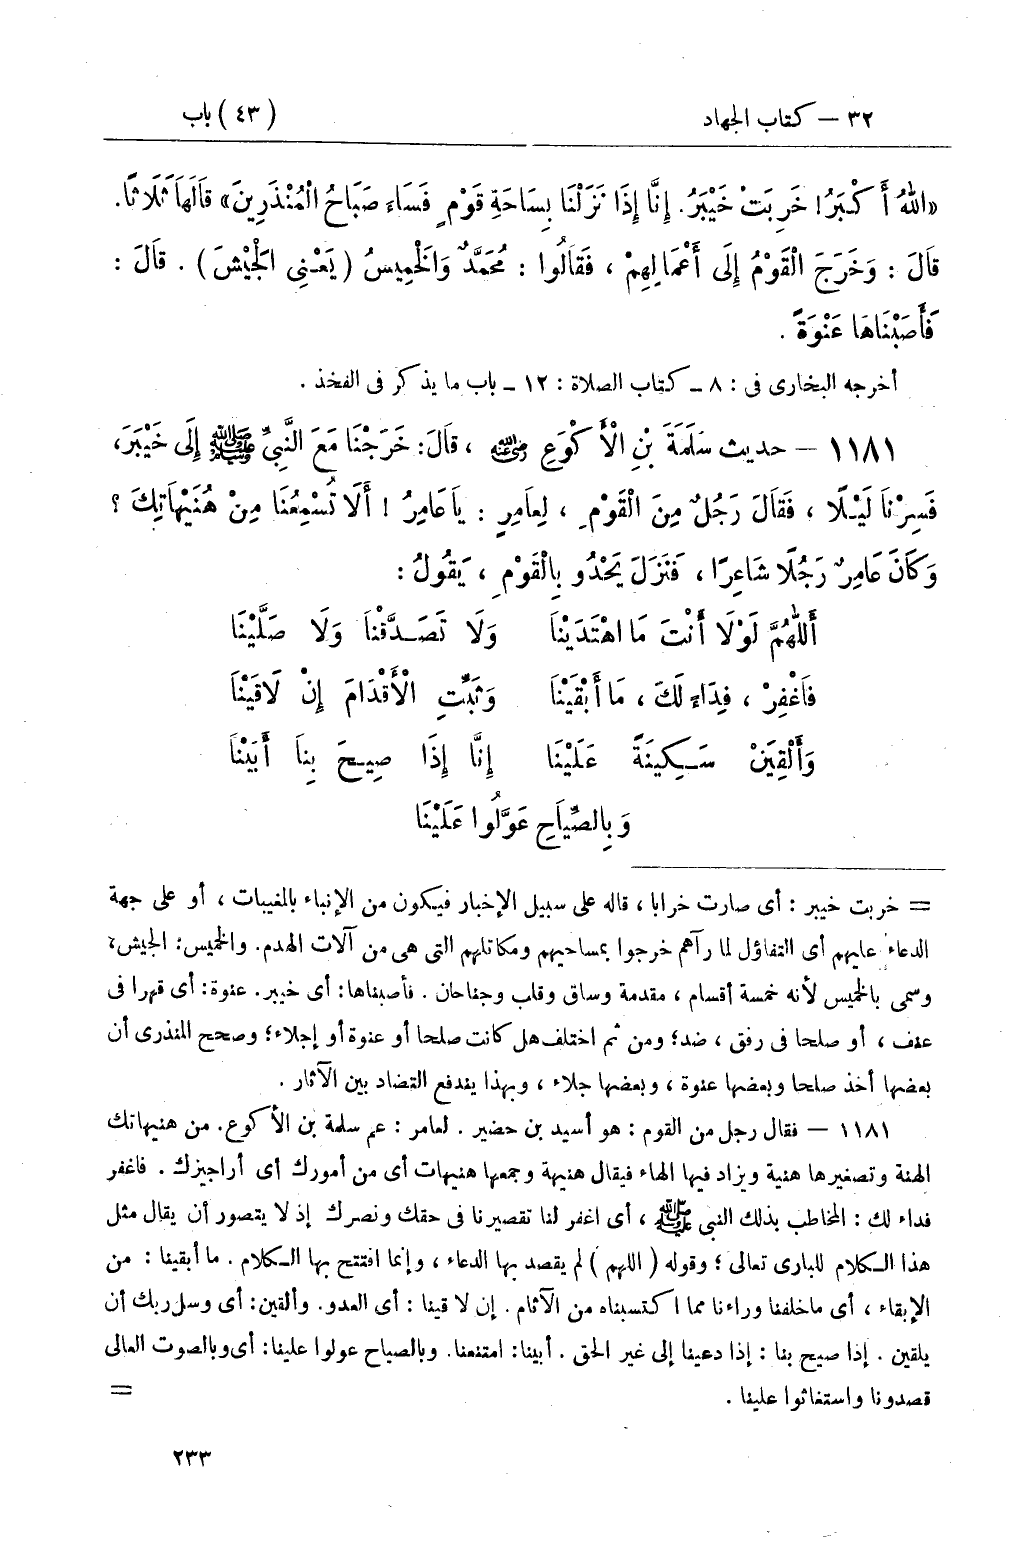 ٣٢ – كتاب الجهاد (٤٣) باب
«اللهُ أَكْبَرُ! خَرِبَتْ خَيْبَرُ. إِنَّا إِذَا نَزَلْنَا بِسَاحَةِ قَوْمٍ فَسَاءَ صَبَاحُ الْمُنْذَرِينَ» قَالَهَا ثَلَاثًا.
قَالَ : وَخَرَجَ الْقَوْمُ إِلَى أَعْمَالِهِمْ ، فَقَالُوا : مُحَمَّدٌ وَالْخَمِيسُ (يَعْنِي الْجَيْشَ) . قَالَ :
فَأَصَبْنَاهَا عَنْوَةً .
أخرجه البخارى فى : ٨ ـ كتاب الصلاة : ١٢ ـ باب ما يذكر فى الفخذ .
١١٨١ – حديث سَلَمَةَ بْنِ الْأَكْوَعِ رضي الله عنه ، قَالَ: خَرَجْنَا مَعَ النَّبِيِّ ﷺ إِلَى خَيْبَرَ،
فَسِرْنَا لَيْلًا ، فَقَالَ رَجُلٌ مِنَ الْقَوْمِ ، لِعَامِرٍ : يَا عَامِرُ ! أَلَا تُسْمِعُنَا مِنْ هُنَيْهَاتِكَ ؟
وَكَانَ عَامِرٌ رَجُلًا شَاعِرًا ، فَنَزَلَ يَحْدُو بِالْقَوْمِ ، يَقُولُ :
أَللّٰهُمَّ لَوْلَا أَنْتَ مَا اهْتَدَيْنَا وَلَا تَصَدَّقْنَا وَلَا صَلَّيْنَا
فَاغْفِرْ ، فِدَاءٌ لَكَ ، مَا أَبْقَيْنَا وَثَبِّتِ الْأَقْدَامَ إِنْ لَاقَيْنَا
وَأَلْقِيَنْ سَكِينَةً عَلَيْنَا إِنَّا إِذَا صِيحَ بِنَا أَبَيْنَا
وَبِالصِّيَاحِ عَوَّلُوا عَلَيْنَا
= خربت خيبر : أى صارت خرابا ، قاله على سبيل الإخبار فيكون من الإنباء بالمغيبات ، أو على جهة
الدعاء عليهم أى التفاؤل لما رآهم خرجوا بمساحيهم ومكاتلهم التى هى من آلات الهدم. والخميس: الجيش؛
وسمى بالخميس لأنه خمسة أقسام ، مقدمة وساق وقلب وجناحان . فأصبناها: أى خيبر. عنوة: أى قهرا فى
عنف ، أو صلحا فى رفق ، ضد؛ ومن ثم اختلف هل كانت صلحا أو عنوة أو إجلاء؛ وصحح المنذرى أن
بعضها أخذ صلحا وبعضها عنوة ، وبعضها جلاء ، وبهذا يندفع التضاد بين الآثار .
١١٨١ – فقال رجل من القوم : هو أسيد بن حضير . لعامر : عم سلمة بن الأكوع. من هنيهاتك
الهنة وتصغيرها هنية ويزاد فيها الهاء فيقال هنيهة وجمعها هنيهات أى من أمورك أى أراجيزك . فاغفر
فداء لك : المخاطب بذلك النبى ﷺ ، أى اغفر لنا تقصيرنا فى حقك ونصرك إذ لا يتصور أن يقال مثل
هذا الكلام للبارى تعالى ؛ وقوله ( اللهم ) لم يقصد بها الدعاء ، وإنما افتتح بها الكلام . ما أبقينا : من
الإبقاء ، أى ما خلفنا وراءنا مما اكتسبناه من الآثام . إن لاقينا : أى العدو. وألقين: أى وسل ربك أن
يلقين . إذا صيح بنا : إذا دعينا إلى غير الحق . أبينا: امتنعنا. وبالصياح عولوا علينا: أى وبالصوت العالى
قصدونا واستغاثوا علينا . =
٢٣٣